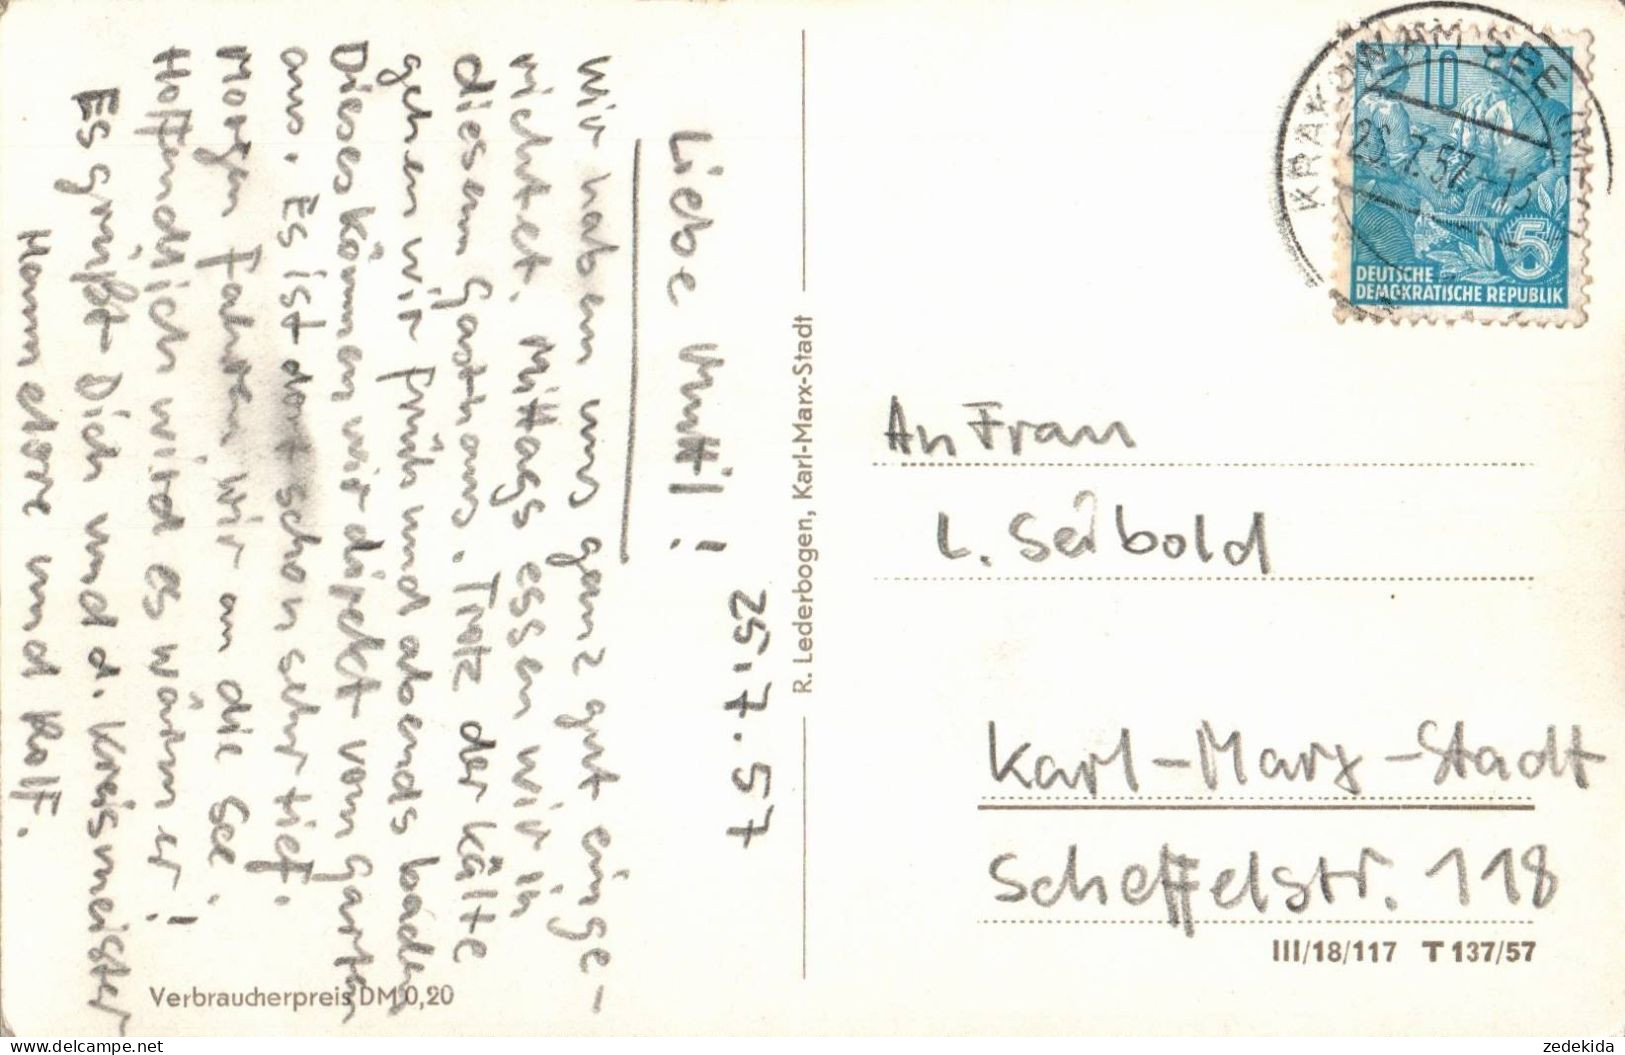 25.7.57
Liebe Mutti!
Wir haben uns ganz gut einge-
richtet. Mittags essen wir in
diesem Gasthaus. Trotz der Kälte
gehen wir früh und abends baden
Dieses können wir direkt vom Garten
aus. Es ist dort schon sehr tief.
Morgen fahren wir an die See.
Hoffendlich wird es wärmer!
Es grüßt Dich und d. Kreismeister
Hannelore und Rolf.
Verbraucherpreis DM 0,20
R. Lederbogen, Karl-Marx-Stadt
KRAKOW AM SEE
.7.57
10
5
DEUTSCHE
DEMOKRATISCHE REPUBLIK
An Frau
L. Seibold
Karl-Marx-Stadt
Scheffelstr. 118
III/18/117 T 137/57
www.delcampe.net
zedekida